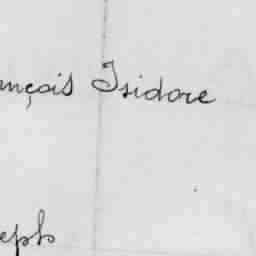 ançois Isidore
eph